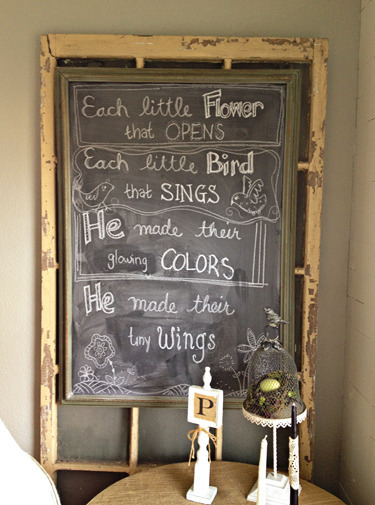 Each little Flower
that OPENS
Each little Bird
that SINGS
He made their
glowing COLORS
He made their
tiny Wings
P